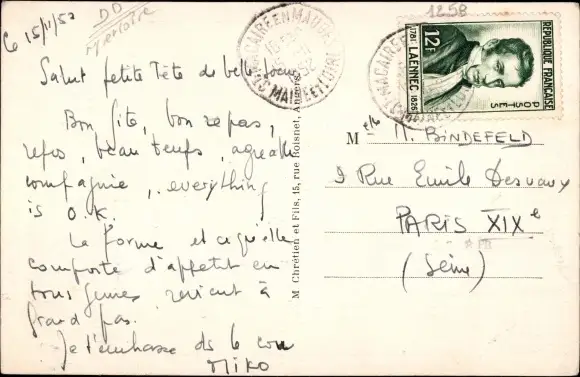 Le 15/11/52
DD
1258
Salut petite Tête de belle
Bon gîte, bon repas,
repos, beau temps, agréable
compagnie, everything
is O.K.
La forme et ce qu'elle
comporte d'appétit en
tous genres revient à
grand pas.
Je t'embrasse ds le cou
MIKO
M. Chrétien et Fils, 15, rue Roisnet, Angers
ST MACAIRE EN MAUGES
MAINE ET LOIRE
REPUBLIQUE FRANÇAISE
POSTES
12F
1781 LAENNEC 1826
M elle M. BINDEFELD
9 Rue Emile Desvaux
PARIS XIXe
(Seine)